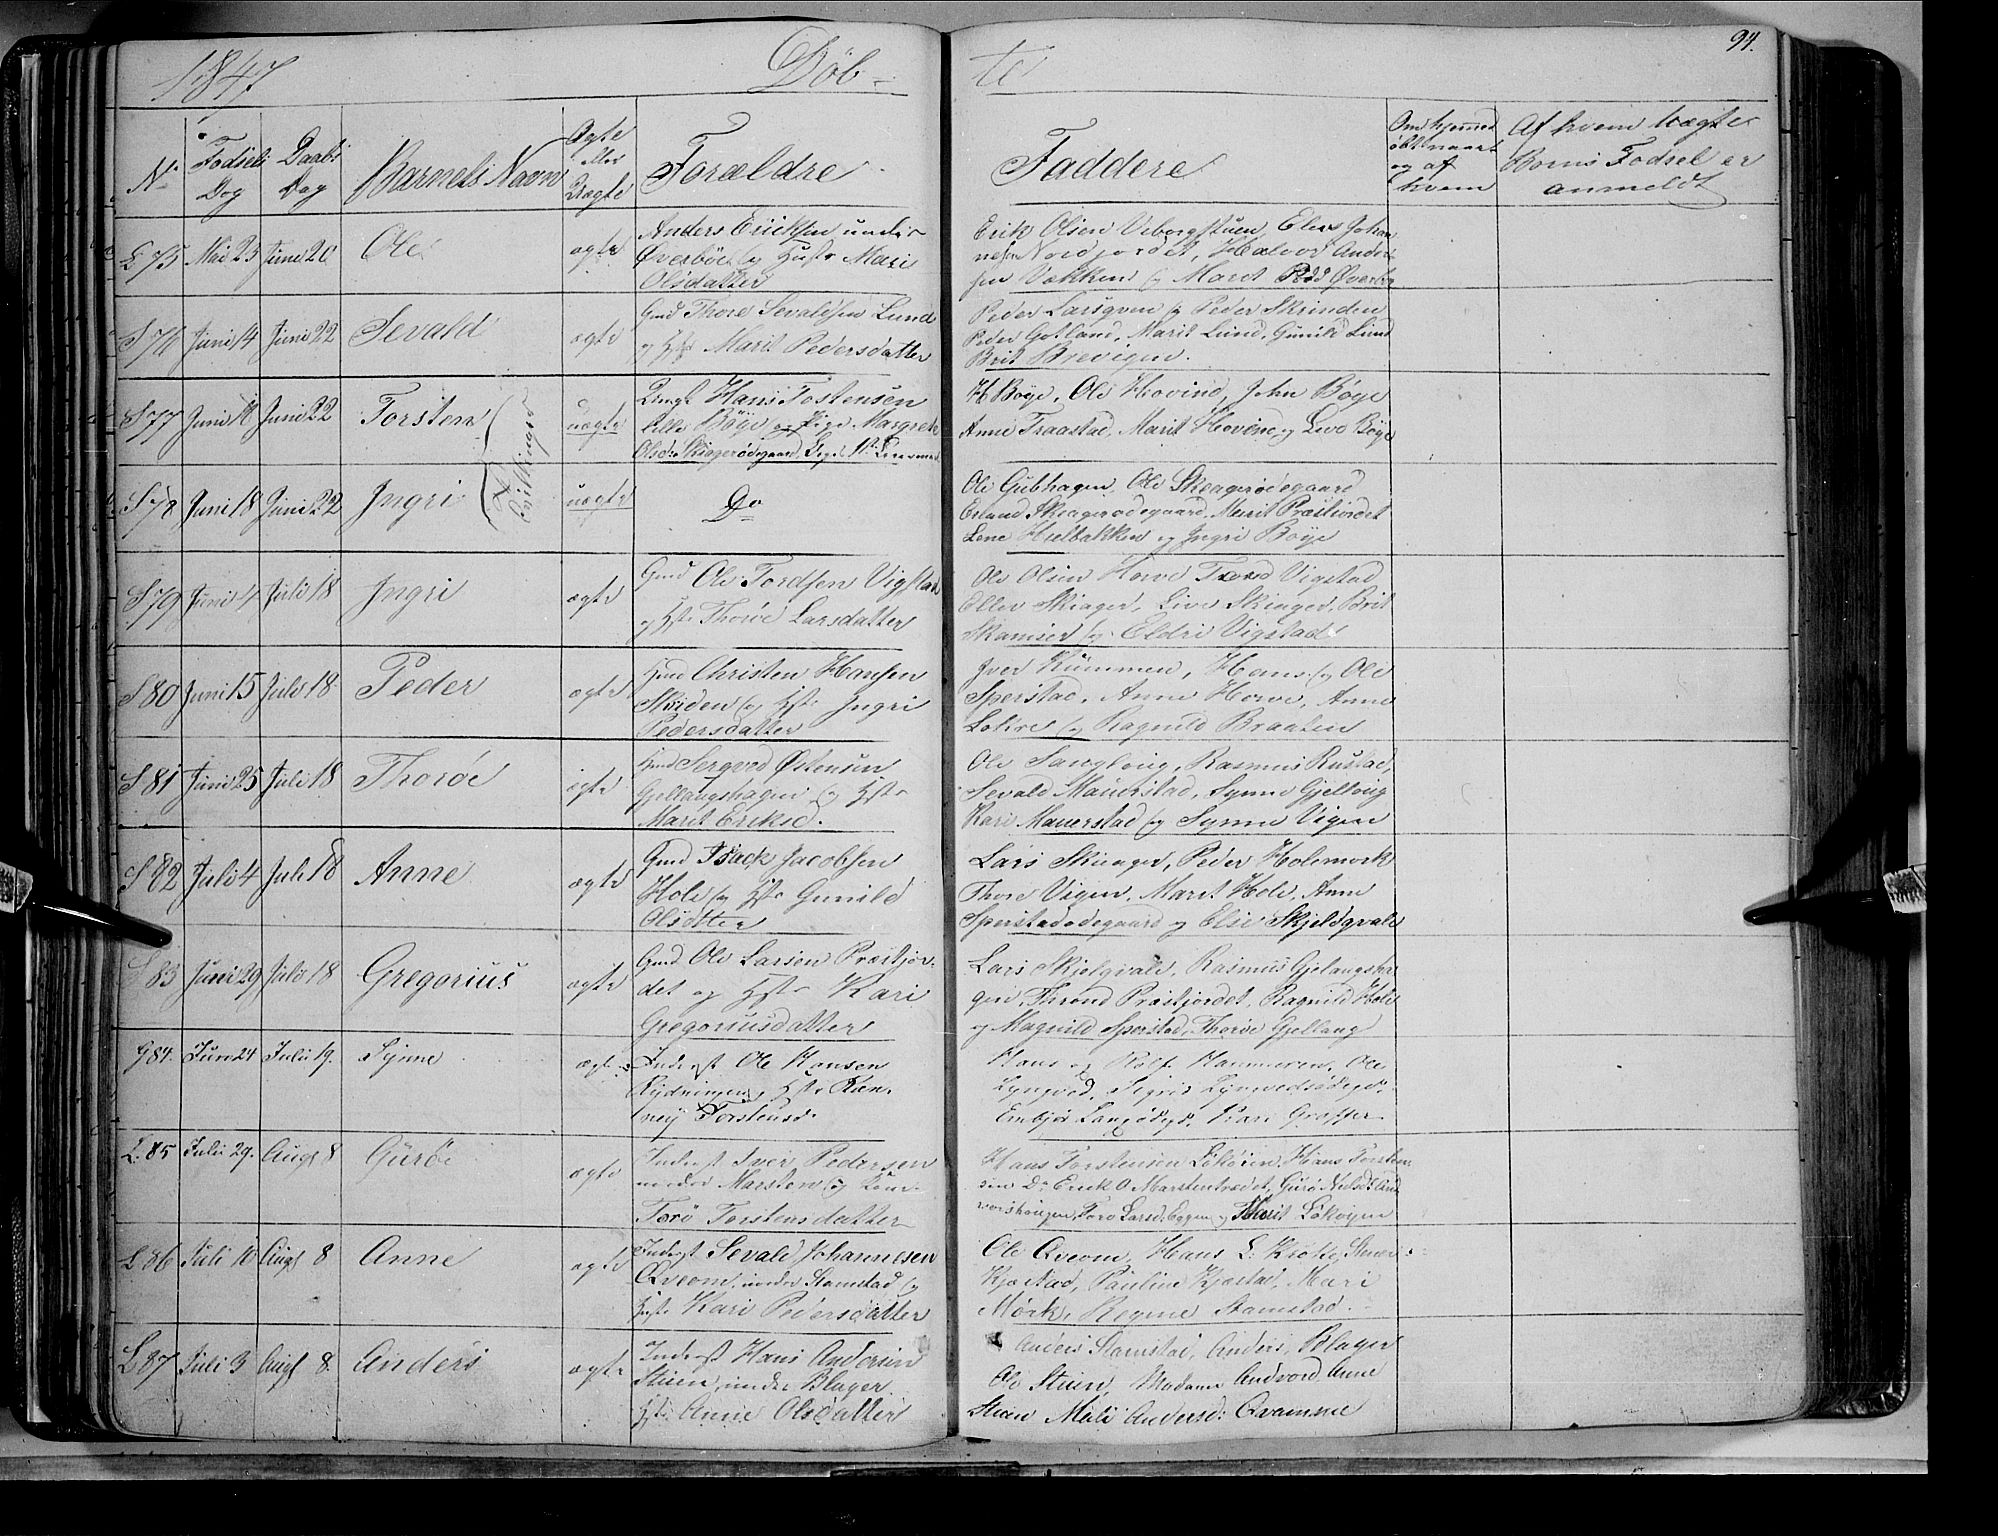 1847 Döb- te 94.
No. Fødsels Dag Daabs Dag Barnets Navn Ægte eller Uægte Forældre Faddere Om hjemmedøbt og af hvem Af hvem uægte Børns Fødsel er anmeldt
L 75 Mai 23 Juni 20 Ole ægte Anders Ericksen under
Øverböe og Hustr Mari
Olsdatter
Erik Olsen Viborgstuen, Elias Johan
nesen Nordjordet, Halvor Ander
sen Vekken og Marit Pedd Øverbö
S 76 Juni 4 Juni 22 Sevald ægte Gmd Thore Sevaldsen Lund
og Hst Marit Pedersdatter
Peder Larsgven og Peder Skrinden
Peder Gotland, Marit Lund, Gunild Lund
Brit Brevigen.
S 77 Juni 18 Juni 22 Torsten uægte Ungk Hans Tostensen
lille Böye og Pige Margrete
Olsdr Skiagerødegaard, Beges 1ste Leiermaal
H Böye, Ole Hovind, John Böye
Anne Traastad, Marit Hovind og Live Böye
Tvillinger
S 78 Juni 18 Juni 22 Ingri uægte Do
Ole Gubhagen, Ole Skiagerødegaard
Erland Skiagerødegaard, Marit Præstjordet
Lene Hielbakken og Ingri Böye
S 79 Juni 4 Juli 18 Ingri ægte Gmd Ole Tordsen Vigstad
og Hst Thorøe Larsdatter
Ole Olsen Horve Tord Vigstad
Eller Skiager, Live Skiager, Brit
Skamser og Eldri Vigstad
S 80 Juni 15 Juli 18 Peder ægte Hmd Christen Hansen
Skriden og Hst Ingri
Pedersdatter
Iver Kummen, Hans og Ole
Sperstad, Anne Horve, Anne
Lokre og Ragnild Braaten
S 81 Juni 25 Juli 18 Thoröe ægte Hmd Sergved Østensen
Gjellaugshagen og Hst
Marit Ericksd.
Ole Sangloug, Rasmus Rustad,
Sevald Maurstad, Synne Gjelloug
Kari Maurstad og Synne Vigen
S 82 Juli 4 Juli 18 Anne ægte Gmd Isack Jacobsen
Hole og Hst Gunild
Olsdtter
Lars Skiager, Peder Holemork
Thore Vigen, Marit Hole, Anne
Sperstadødegaard og Elsie Skjeldqvale
S 83 Juni 29 Juli 18 Gregorius ægte Gmd Ole Larsen Præstjor-
det og Hst Kari
Gregoriusdatter
Lars Skjelqvale, Rasmus Gjelaugsha
gen, Thrond Præstjordet, Ragnild Hole
og Magnild Sperstad, Thoröe Gjellaug
G 84. Juni 24 Juli 19. Synne ægte Inderst Ole Hansen
Rydningen, Hst Ran-
neij Torstensd.
Hans og Rolf Hammeren, Ole
Lyngved, Sigrid Lyngvedsödegd.
Embjør Langödegd, Kari Graffer
L. 85 Juli 29. Augs 8 Guröe ægte Inderst Iver Pedersen
nordre Marsten og Kone
Torö Torstensdatter
Hans Torstensen Lökören, Hans Torsten
sen Do Erick O Marstentrædet, Gurö Nielsdt Lind
vorshaugen, Toro Larsd. Eggen og Marit Lökögen
L 86 Juli 10 Augs 8 Anne ægte Inderst Sevald Johannesen
Qveom, under Stamstad og
Hst Kari Pedersdatter
Ole Qveom, Hans L. Krökje, Stener
Kjæstad, Pauline Kjæstad, Mari
Mörk, Regine Stamstad.
L 87 Juli 3 Augs 8. Anders ægte Inderst Hans Andersen
Stuen, under Blager
Hst Anne Olsdatter
Anders Stamstad, Anders Blager
Ole Stuen, Madame Andvord, Anne
Stuen Mali Andersd: Qvamme